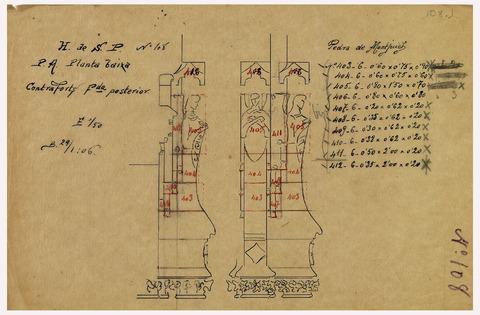 H. de S. P. Nº 108
P. A. Planta baixa
Contraforts posterior
E 1/50
B. 29/1:06.
Pedra de Montjuich
403 - 6 - 0'60 x 0'75 x 0'90
404 - 6 - 0'60 x 0'75 x 0'60
405 - 6 - 0'80 x 1'50 x 0'70
406 - 6 - 0'80 x 0'60 x 0'80
407 - 6 - 0'20 x 0'62 x 0'20 X
408 - 6 - 0'35 x 0'62 x 0'20 X
409 - 6 - 0'30 x 0'62 x 0'20 X
410 - 6 - 0'38 x 0'62 x 0'20 X
411 - 6 - 0'50 x 2'00 x 0'20 X
412 - 6 - 0'35 x 2'00 x 0'20 X
406 406 406
405 405
411
404 404 404
403 403 403
Nº 108